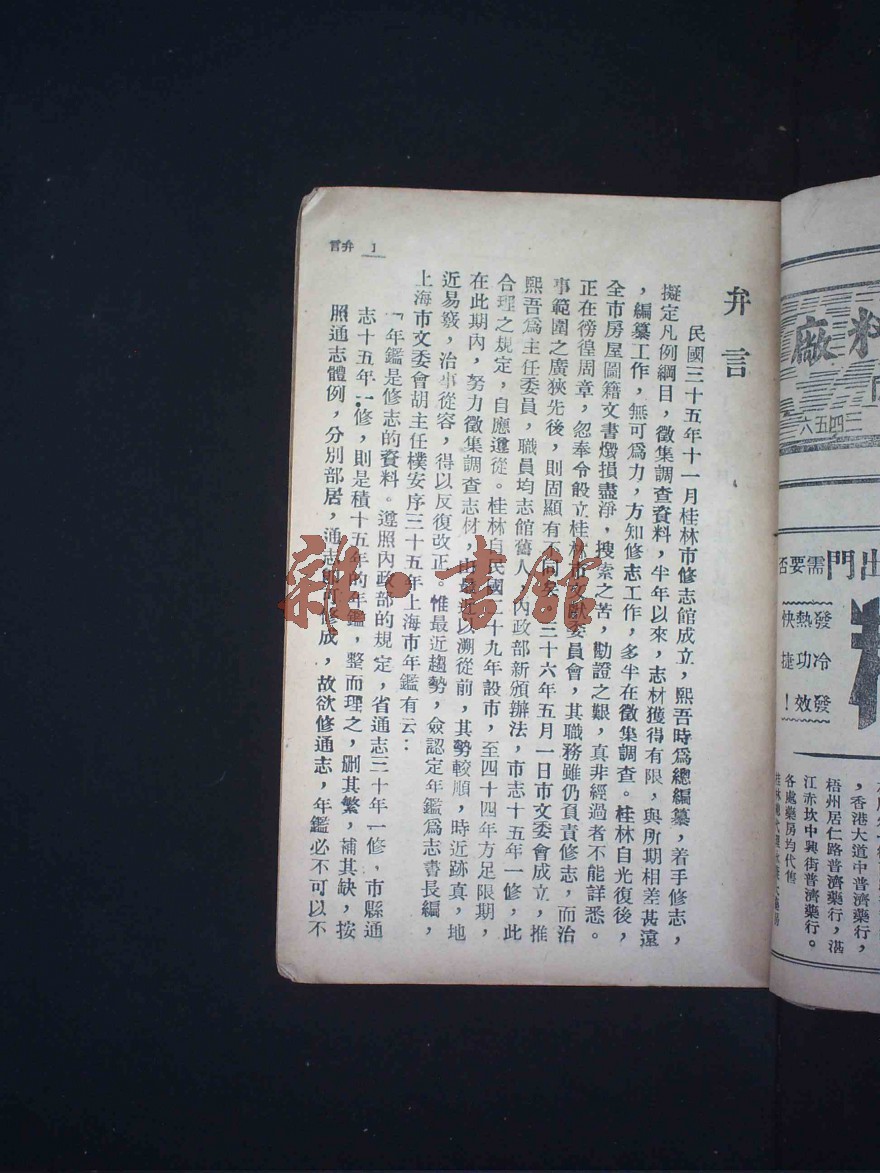 弁言
民國三十五年十一月桂林市修志館成立，熙吾時爲總編纂，着手修志，
擬定凡例綱目，徵集調查資料，半年以來，志材獲得有限，與所期相差甚遠
，編纂工作，無可爲力，方知修志工作，多半在徵集調查。桂林自光復後，
全市房屋圖籍文書燬損盡淨，搜索之苦，勘證之艱，真非經過者不能詳悉。
正在徬徨周章，忽奉令飭立桂林市文獻委員會，其職務雖仍負責修志，而治
事範圍之廣狹先後，則固顯有不同。三十六年五月一日市文委會成立，推
熙吾爲主任委員，職員均志館舊人，內政部新頒辦法，市志十五年一修，此
合理之規定，自應遵從。桂林自民國二十九年設市，至四十四年方足限期，
在此期內，努力徵集調查志材，由最近以溯從前，其勢較順，時近跡真，地
近易竅，治事從容，得以反復改正。惟最近趨勢，僉認定年鑑爲志書長編，
上海市文委會胡主任樸安序三十五年上海市年鑑有云：
「年鑑是修志的資料。遵照內政部的規定，省通志三十年一修，市縣通
志十五年一修，則是積十五年的年鑑，整而理之，刪其繁，補其缺，按
照通志體例，分別部居，通志即可修成，故欲修通志，年鑑必不可以不
弁言 1
雜·書館
料廠
三四五六
出門需要否
發熱快
冷功捷
發效！
，香港大道中普濟藥行，
梧州居仁路普濟藥行，湛
江赤坎中興街普濟藥行。
各處藥房均代售